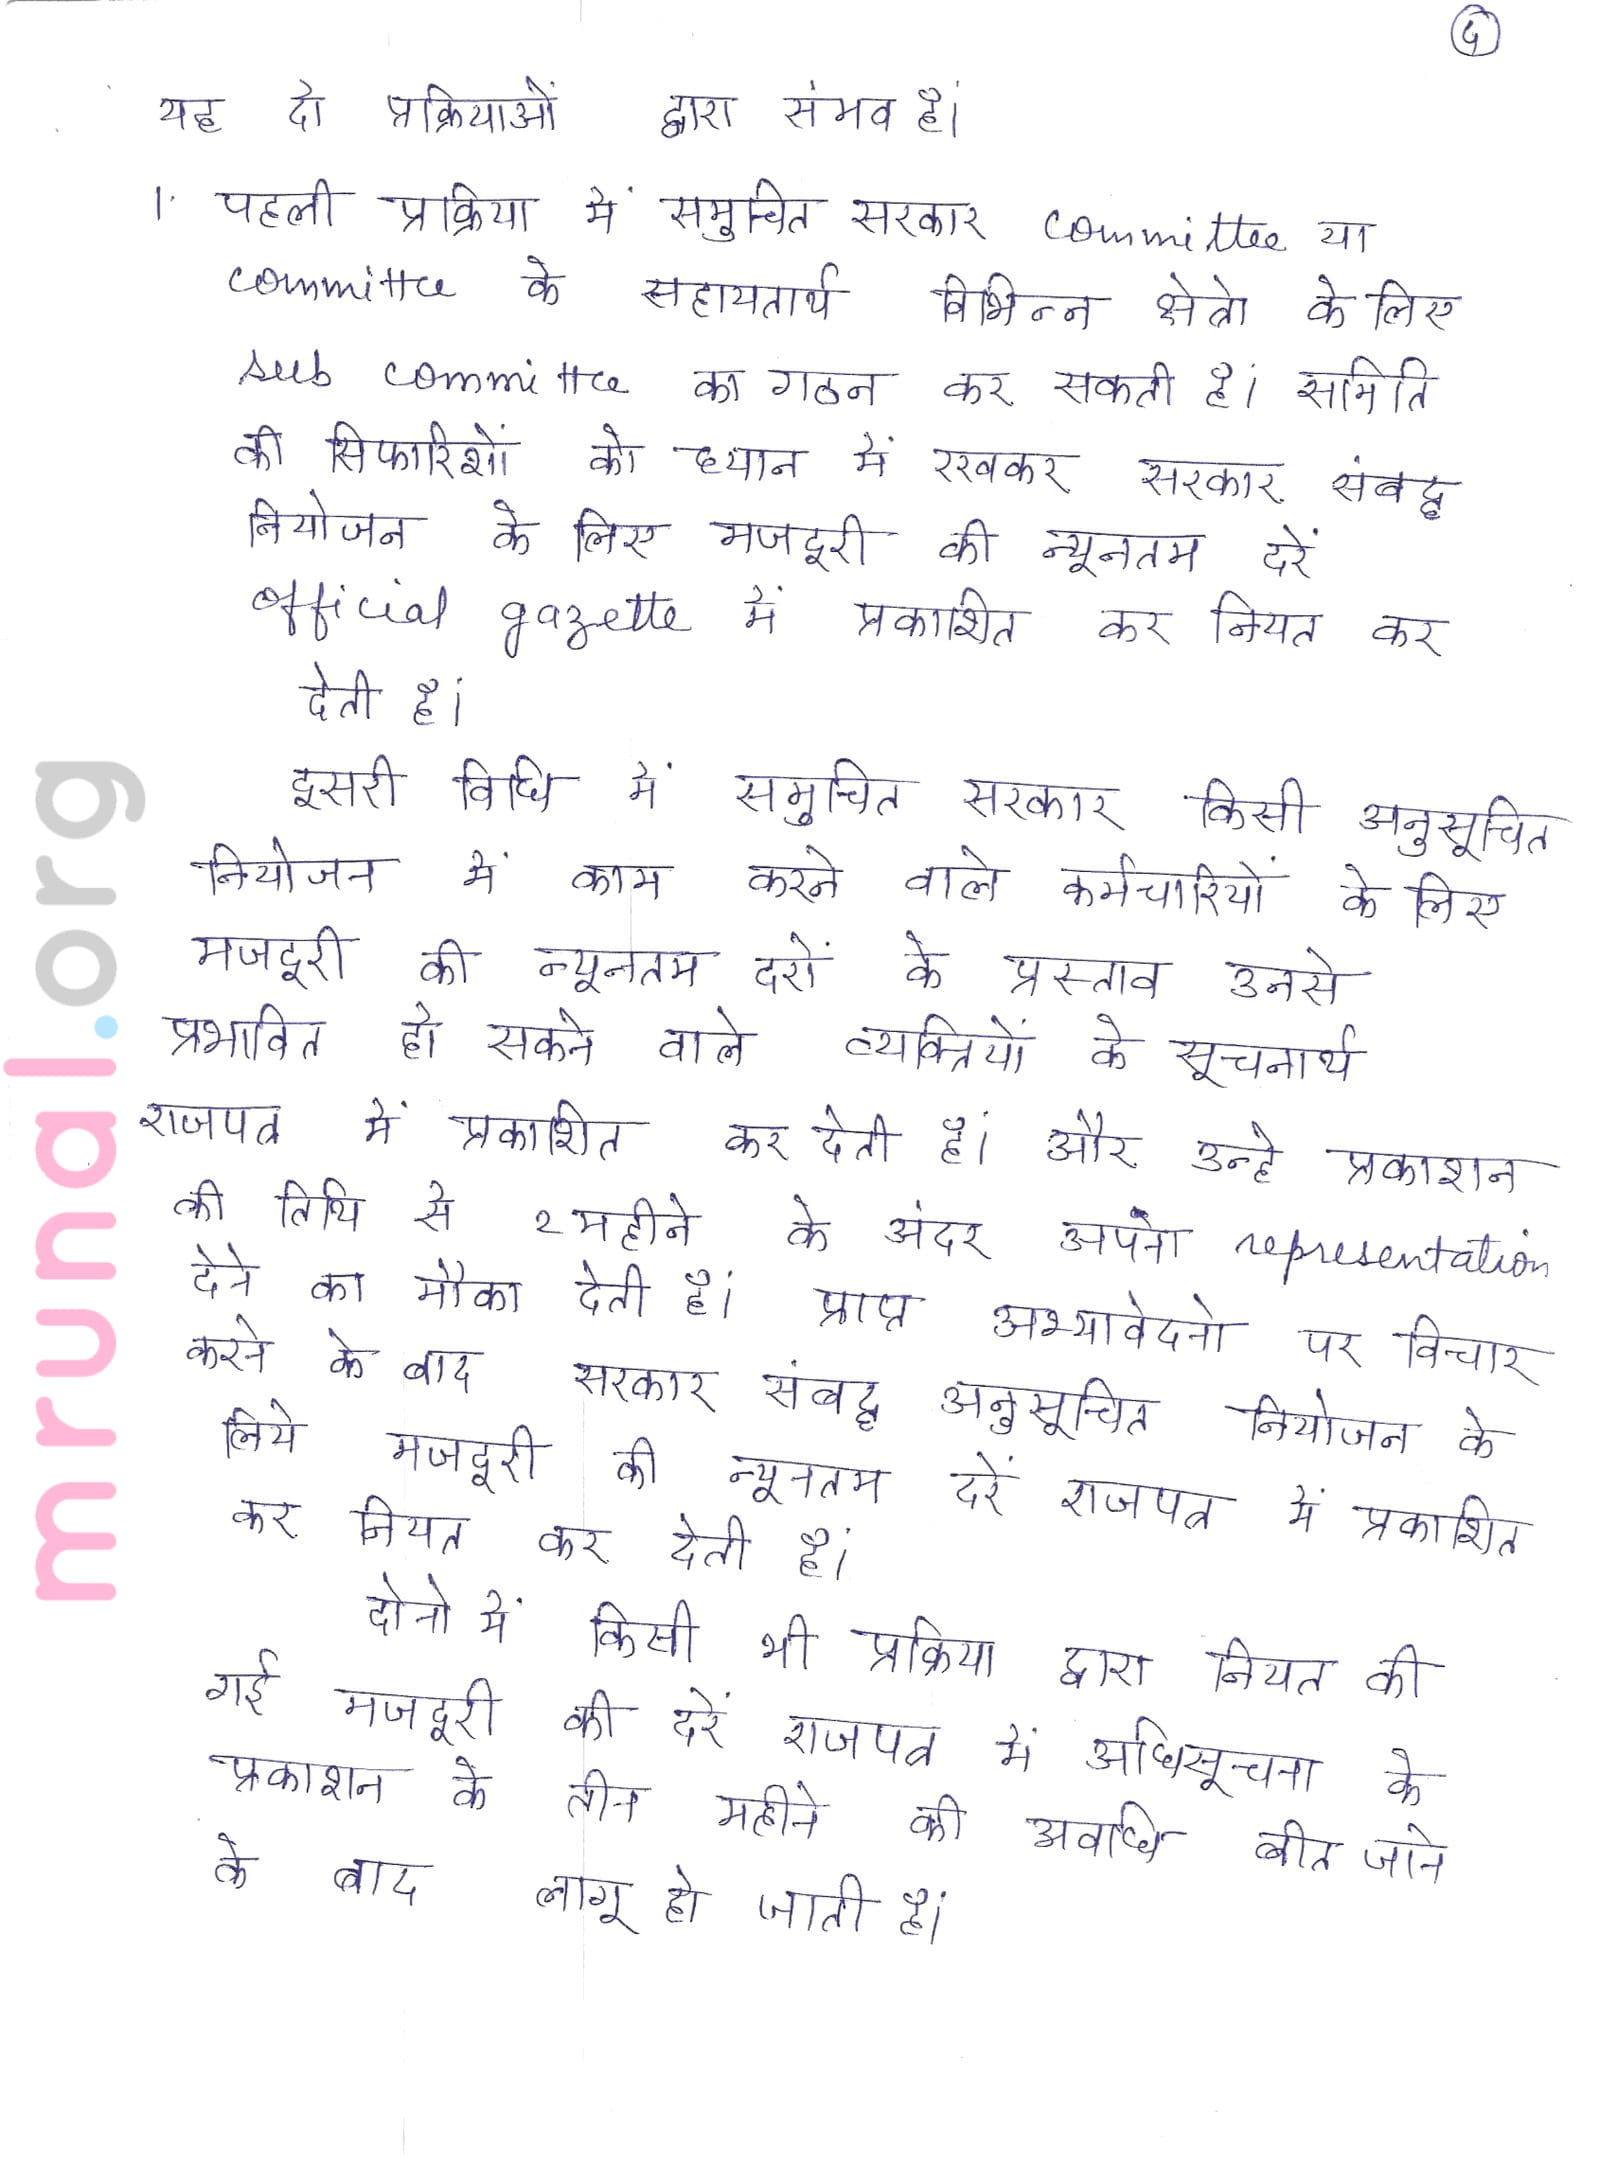 ५
यह दो प्रक्रियाओं द्वारा संभव है।
1. पहली प्रक्रिया में समुचित सरकार committee या
committee के सहायतार्थ विभिन्न क्षेत्रो के लिए
sub committee का गठन कर सकती है। समिति
की सिफारिशों को ध्यान में रखकर सरकार संबद्ध
नियोजन के लिए मजदूरी की न्यूनतम दरें
official gazette में प्रकाशित कर नियत कर
देती है।
दूसरी विधि में समुचित सरकार किसी अनुसूचित
नियोजन में काम करने वाले कर्मचारियों के लिए
मजदूरी की न्यूनतम दरों के प्रस्ताव उनसे
प्रभावित हो सकने वाले व्यक्तियों के सूचनार्थ
राजपत्र में प्रकाशित कर देती है। और उन्हे प्रकाशन
की तिथि से २ महीने के अंदर अपना representation
देने का मौका देती है। प्राप्त अभ्यावेदनो पर विचार
करने के बाद सरकार संबद्ध अनुसूचित नियोजन के
लिये मजदूरी की न्यूनतम दरें राजपत्र में प्रकाशित
कर नियत कर देती है।
दोनो में किसी भी प्रक्रिया द्वारा नियत की
गई मजदूरी की दरें राजपत्र में अधिसूचना के
प्रकाशन के तीन महीने की अवधि बीत जाने
के बाद लागू हो जाती है।
mrunal.org